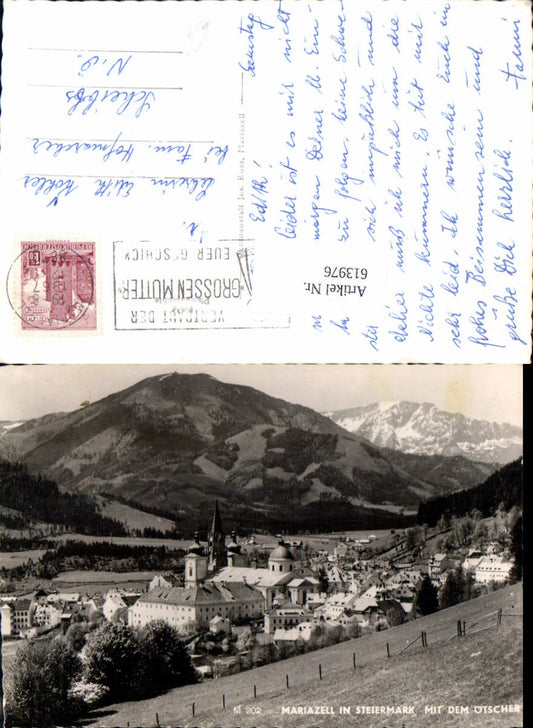 Samstag
Edith!
leider ist es mir nicht
möglich Deiner lb. Ein-
zu folgen. Meine Schwe-
ster sich unpäßlich und
daher muß ich mich um die
Nichte kümmern. Es tut mir
sehr leid. Ich wünsche Euch ein
frohes Beisammensein und
grüße Dich herzlich.
Fanni
Edith Kohler
bei Fam. Hofmarcher
Scheibbs
N.Ö.
VERTRAUT DER
GROSSEN MUTTER
EUER GESCHICK
Artikel Nr.
613976
M 202 MARIAZELL IN STEIERMARK MIT DEM ÖTSCHER